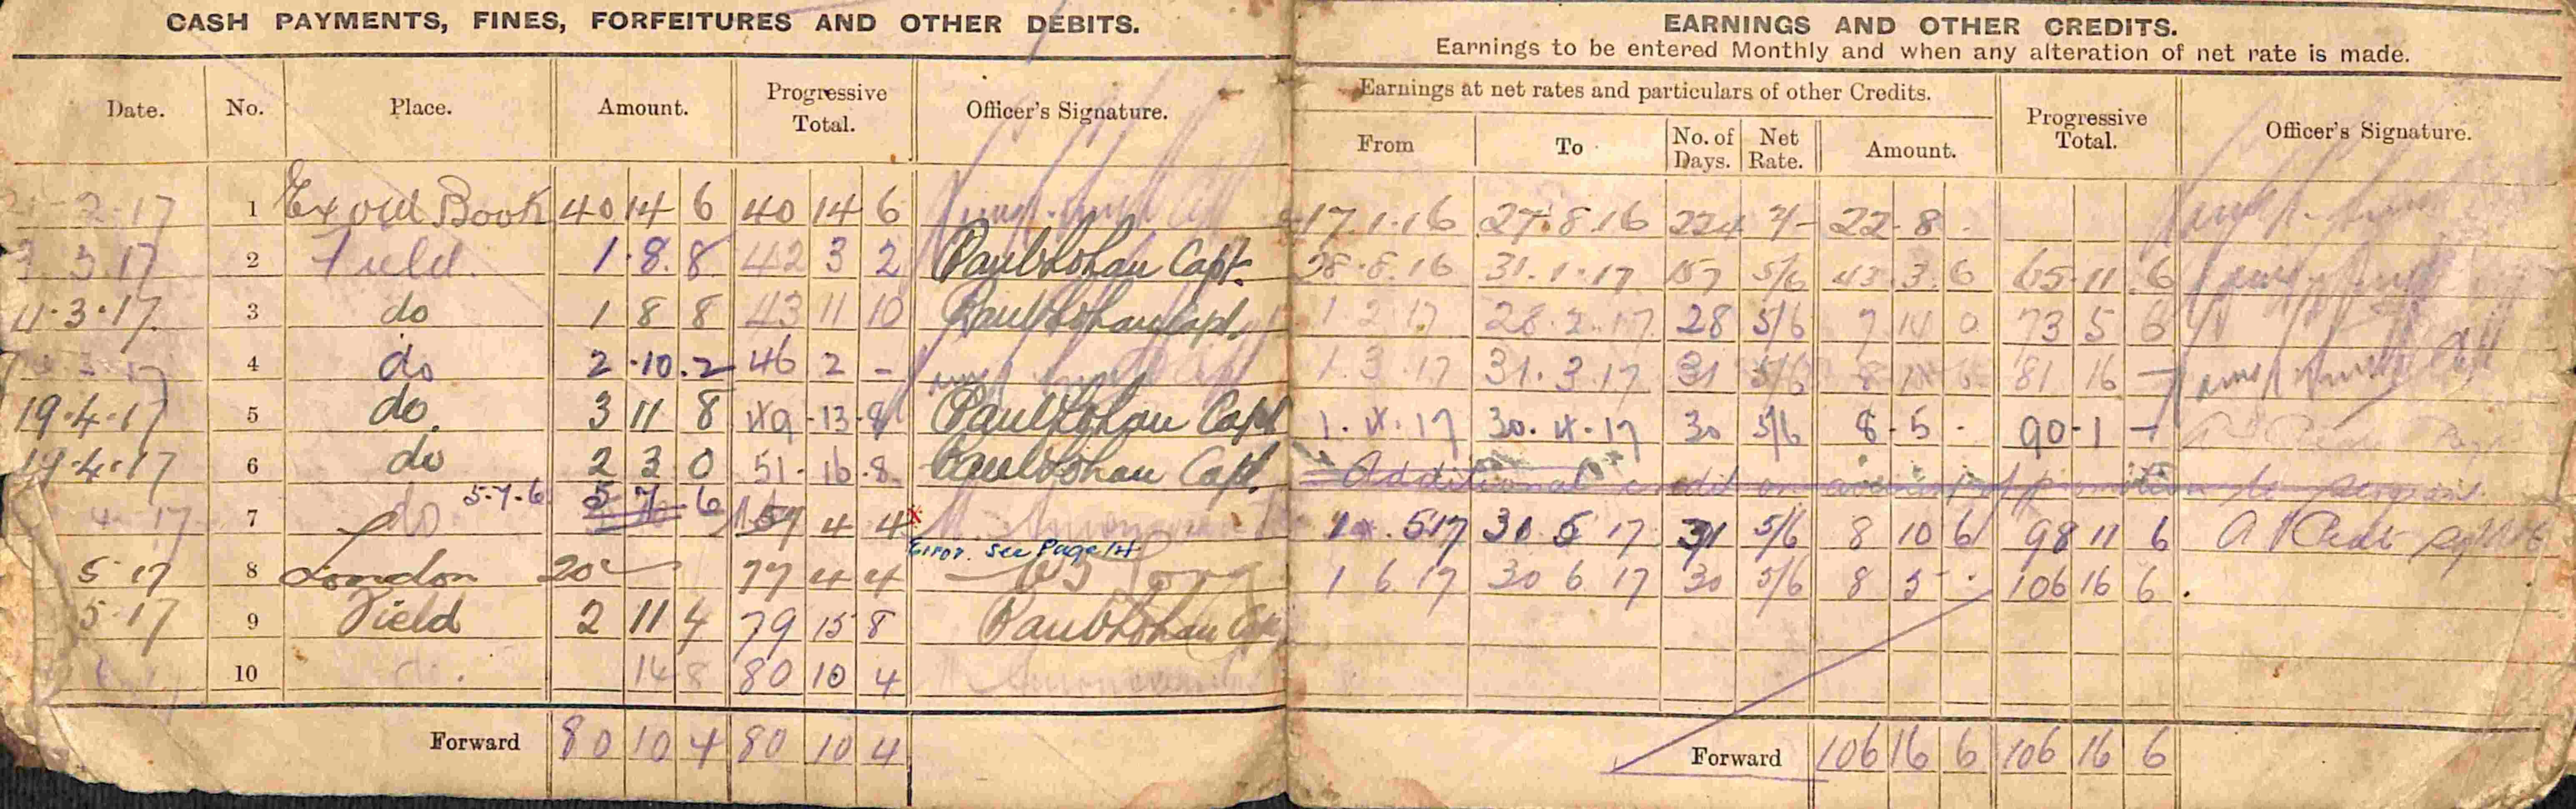 CASH PAYMENTS, FINES, FORFEITURES AND OTHER DEBITS.
Date. No. Place. Amount. Progressive Total. Officer's Signature.
2.17 1 Ex old Book 40 14 6 40 14 6
3.3.17 2 Field. 1.8.8 42 3 2 Capt.
11.3.17. 3 do 1 8 8 43 11 10 Capt.
4 do 2.10.2 46 2 -
19.4.17 5 do. 3 11 8 49.13.8 Capt
19.4.17 6 do 2 3 0 51.16.8 Capt.
4 17 7 do 5.7.6 5 7 6 57 4 4 x
Error. See Page
5 17 8 London 20 77 4 4
5.17 9 Field 2 11 4 79 15 8
10 do. 14 8 80 10 4
Forward 80 10 4 80 10 4
EARNINGS AND OTHER CREDITS.
Earnings to be entered Monthly and when any alteration of net rate is made.
Earnings at net rates and particulars of other Credits. Progressive Total. Officer's Signature.
From To No. of Days. Net Rate. Amount.
17.1.16 27.8.16 224 2/- 22.8.
28.8.16 31.1.17 157 5/6 43.3.6 65.11.6
1 2 17 28.2.17 28 5/6 7 14 0 73 5 6
1.3.17 31.3.17 31 5/6 8 10 6 81 16 -
1.4.17 30.4.17 30 5/6 8.5. 90.1 -
Additional credit on account of promotion to
1.5.17 31 5 17 31 5/6 8 10 6 98 11 6
1 6 17 30 6 17 30 5/6 8 5 - 106 16 6
Forward 106 16 6 106 16 6